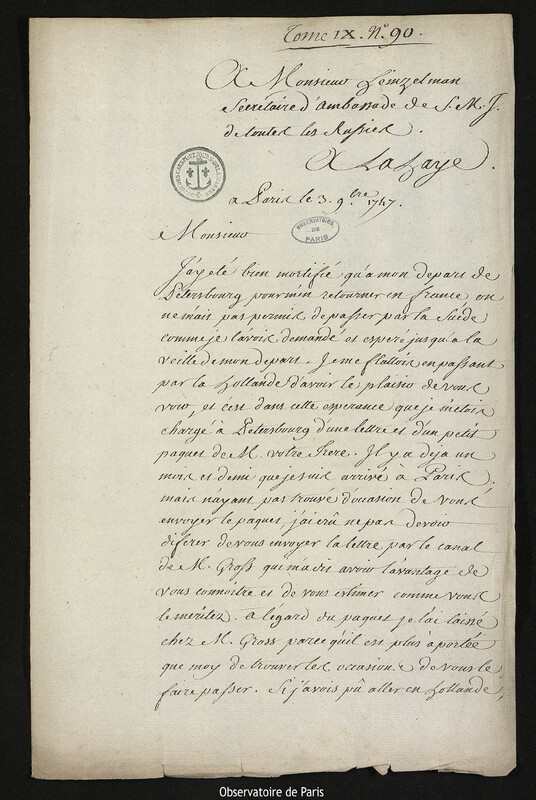 Tome IX. N.º 90.
A Monsieur Heinzelman
Secretaire d'ambassade de S. M. J.
de toutes les Russies.
A La Haye.
a Paris le 3. 9.bre 1747.
OBSERVATOIRE
DE
PARIS
Monsieur
J'ay eté bien mortifié qu'a mon depart de
Petersbourg pour m'en retourner en france on
ne m'ait pas permis de passer par la Suede
comme je l'avois demandé et esperé jusqu'a la
veille de mon depart. Je me flattois en passant
par la Hollande d'avoir le plaisir de vous
voir, et c'est dans cette esperance que je m'etois
chargé à Petersbourg d'une lettre et d'un petit
paquet de M. votre frere. Il y a deja un
mois et demi que je suis arrivé à Paris;
mais n'ayant pas trouvé d'ocasion de vous
envoyer le paquet, j'ai crû ne pas devoir
diferer de vous envoyer la lettre par le canal
de M. Gross qui m'a dit avoir l'avantage de
vous connoitre et de vous estimer comme vous
le meritez. a l'égard du paquet je l'ai laissé
chez M. Gross parce qu'il est plus a portée
que moy de trouver les occasions de vous le
faire passer. Si j'avois pû aller en Hollande,
Observatoire de Paris